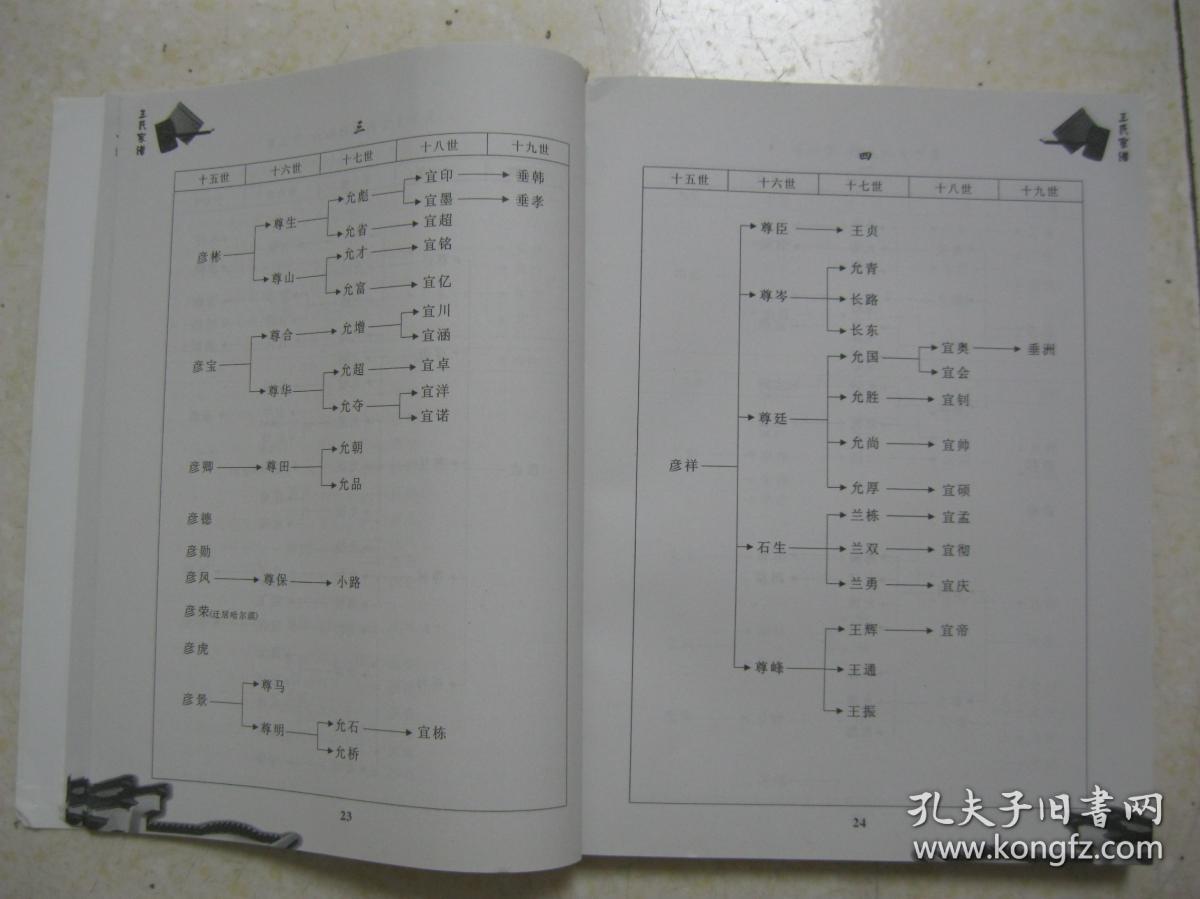 王氏家谱
三
十五世 十六世 十七世 十八世 十九世
宜印 垂韩
允彪
宜墨 垂孝
尊生
允省 宜超
彦彬
允才 宜铭
尊山
允富 宜亿
宜川
尊合 允增
宜涵
彦宝
允超 宜卓
尊华
宜洋
允夺
宜诺
允朝
彦卿 尊田
允品
彦德
彦勋
彦风 尊保 小路
彦荣(迁居哈尔滨)
彦虎
尊马
彦景
尊明 允石 宜栋
允桥
23
王氏家谱
四
十五世 十六世 十七世 十八世 十九世
尊臣 王贞
允青
尊岑 长路
长东
宜奥 垂洲
允国
宜会
允胜 宜钊
尊廷
允尚 宜帅
彦祥
允厚 宜硕
兰栋 宜孟
石生 兰双 宜彻
兰勇 宜庆
王辉 宜帝
尊峰 王通
王振
24
孔夫子旧书网
www.kongfz.com